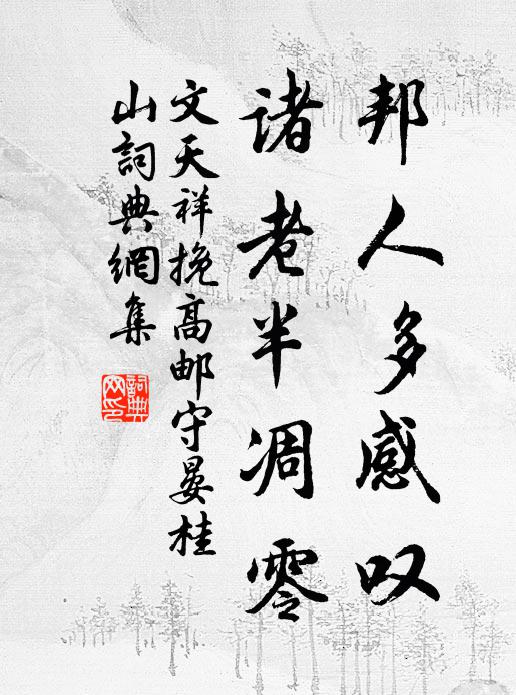 邦人多感叹
诸老半凋零
文天祥挽高邮守晏桂
山詞典網集
詞典网印